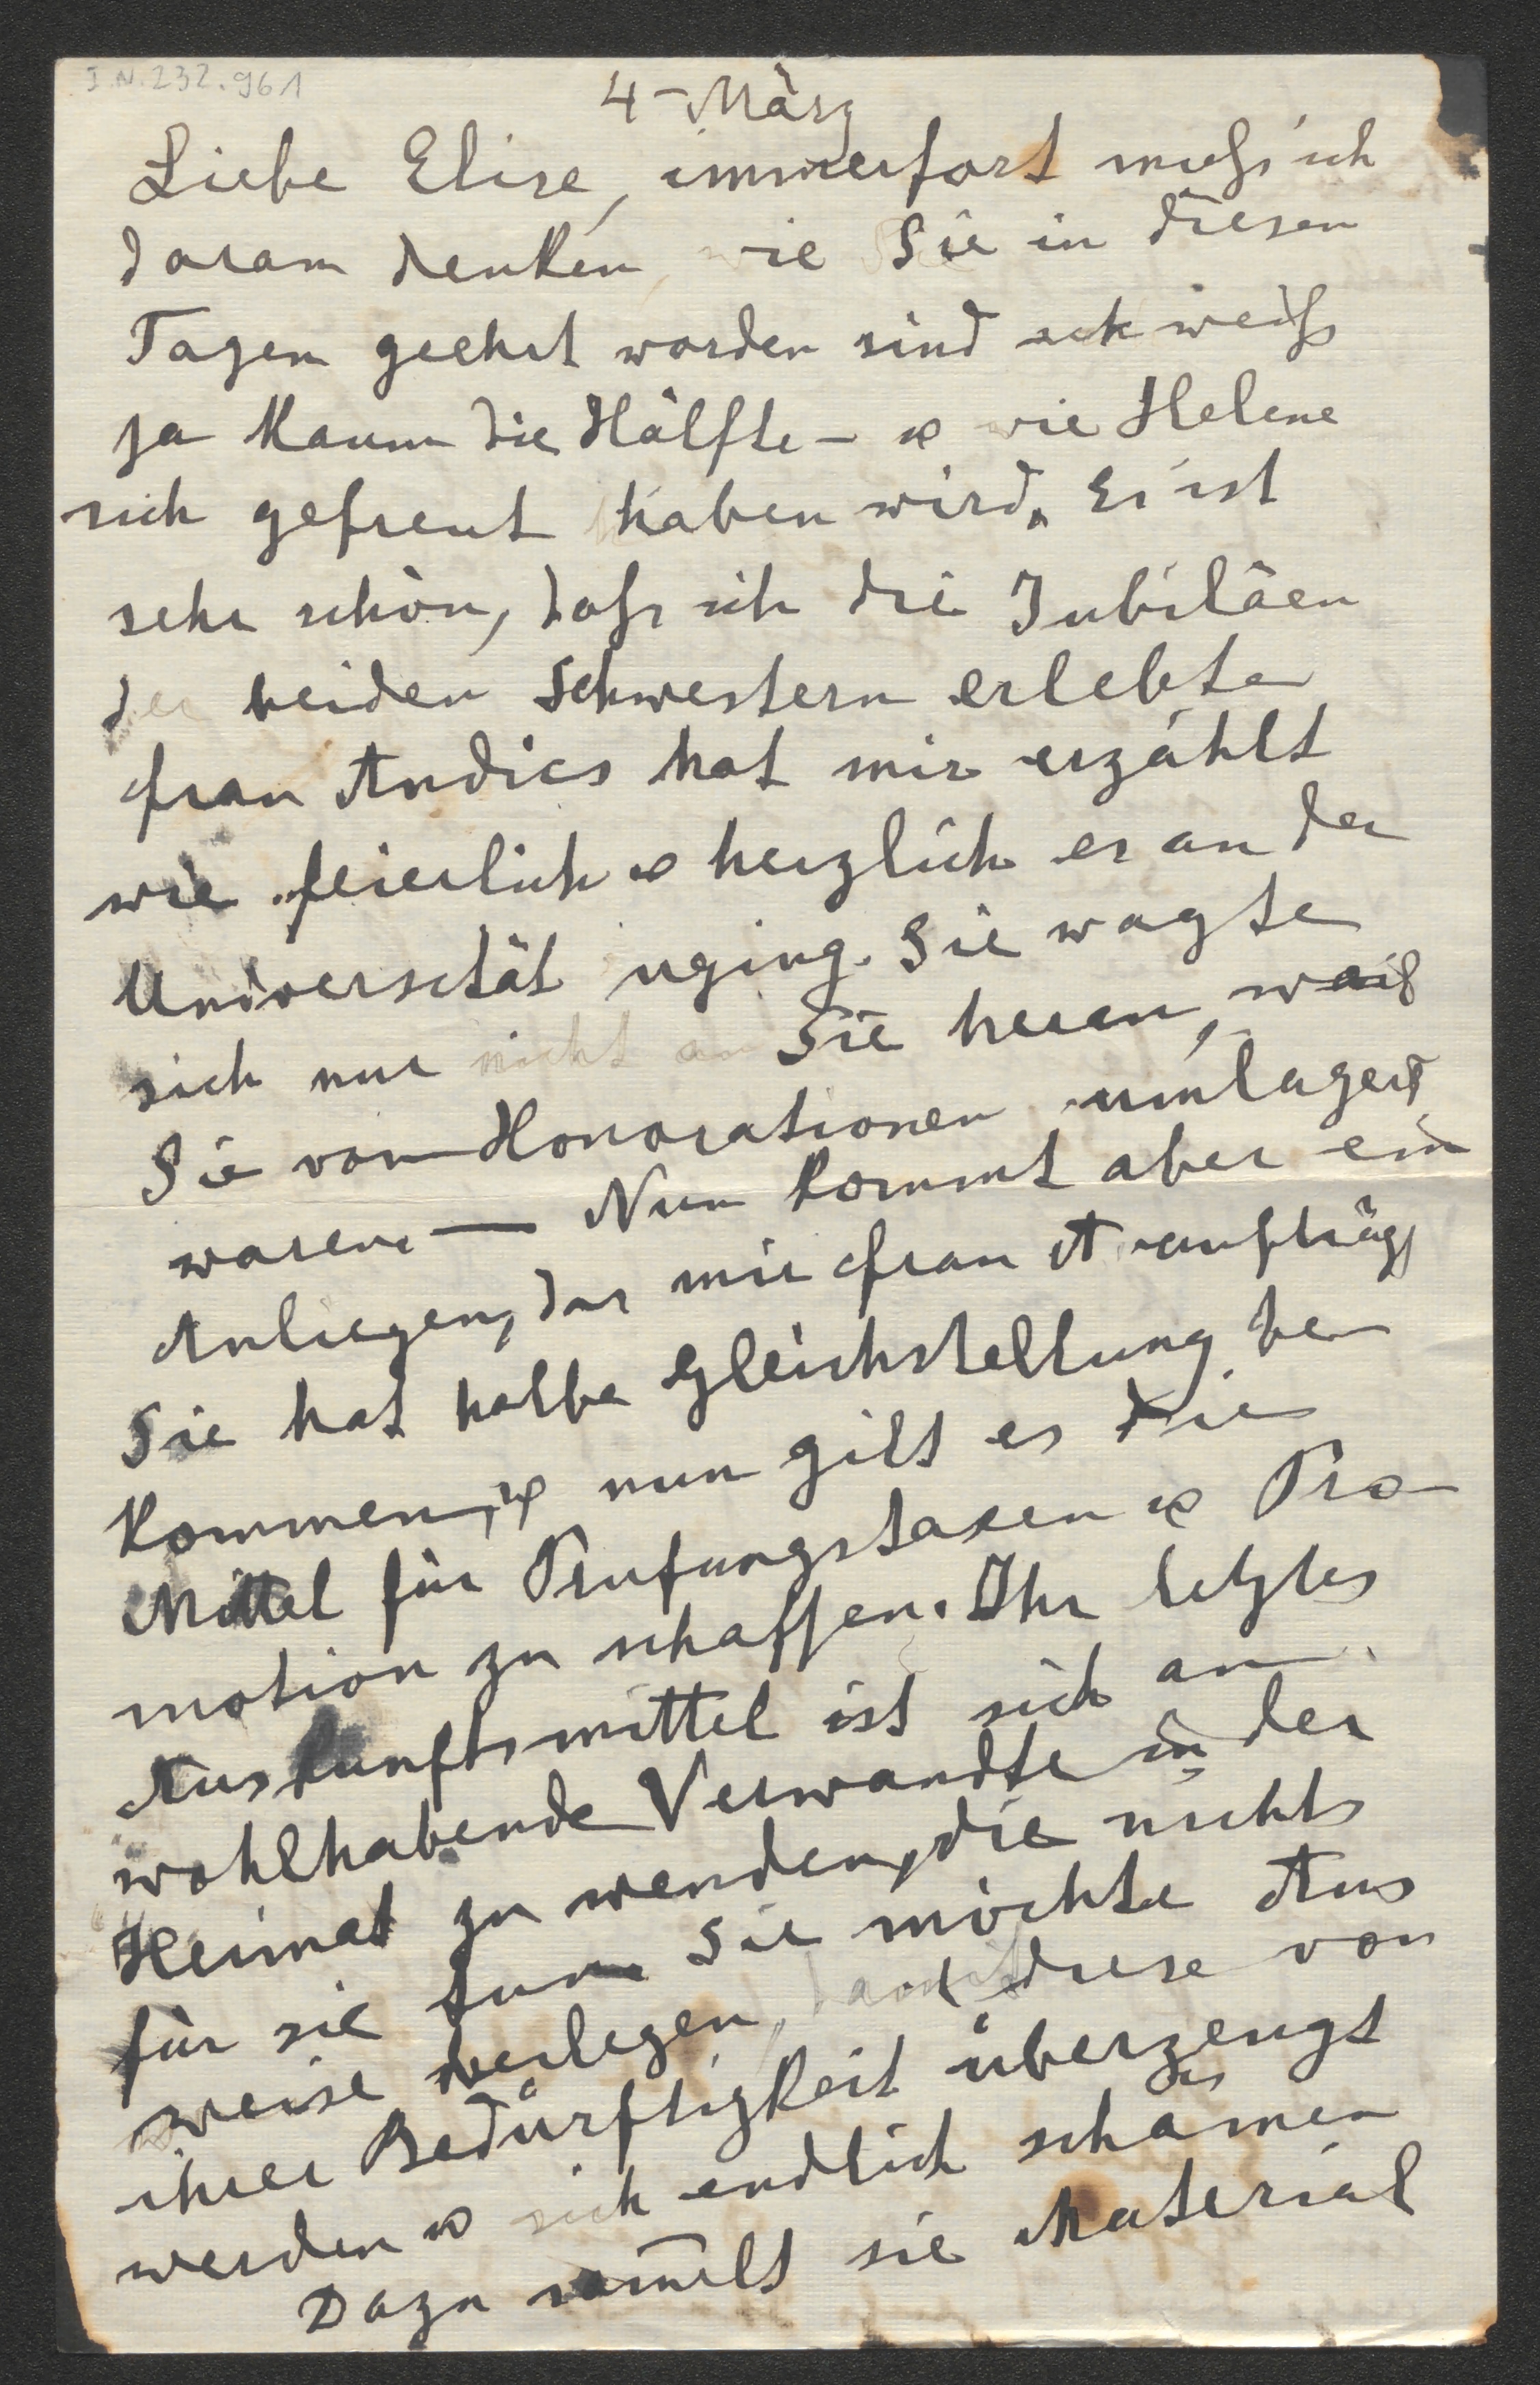 I.N. 232.961
4 - März
Liebe Elise, immerfort muß ich
daran denken, wie Sie in diesen
Tagen geehrt worden sind ich weiß
ja kaum die Hälfte - & wie Helene
sich gefreut haben wird. Es ist
sehr schön, daß ich die Jubiläen
der beiden Schwestern erlebte
Frau Andics hat mir erzählt
wie feierlich & herzlich es an der
Universität zuging. Sie wagte
sich nur nicht an Sie heran, weil
Sie von Honorationen umlagert
waren. — Nun kommt aber ein
Anliegen, das mir Frau A aufträgt
Sie hat halbe Gleichstellung be
kommen, & nun gilt es die
Mittel für Prüfungstaxen & Pro
motion zu schaffen. Ihr letztes
Auskunftsmittel ist sich an
wohlhabende Verwandte in der
Heimat zu wenden, die nichts
für sie tun. Sie möchte Aus
weise vorlegen, damit diese von
ihrer Bedürftigkeit überzeugt
werden & sich endlich schämen
Dazu sam̄elt sie Material